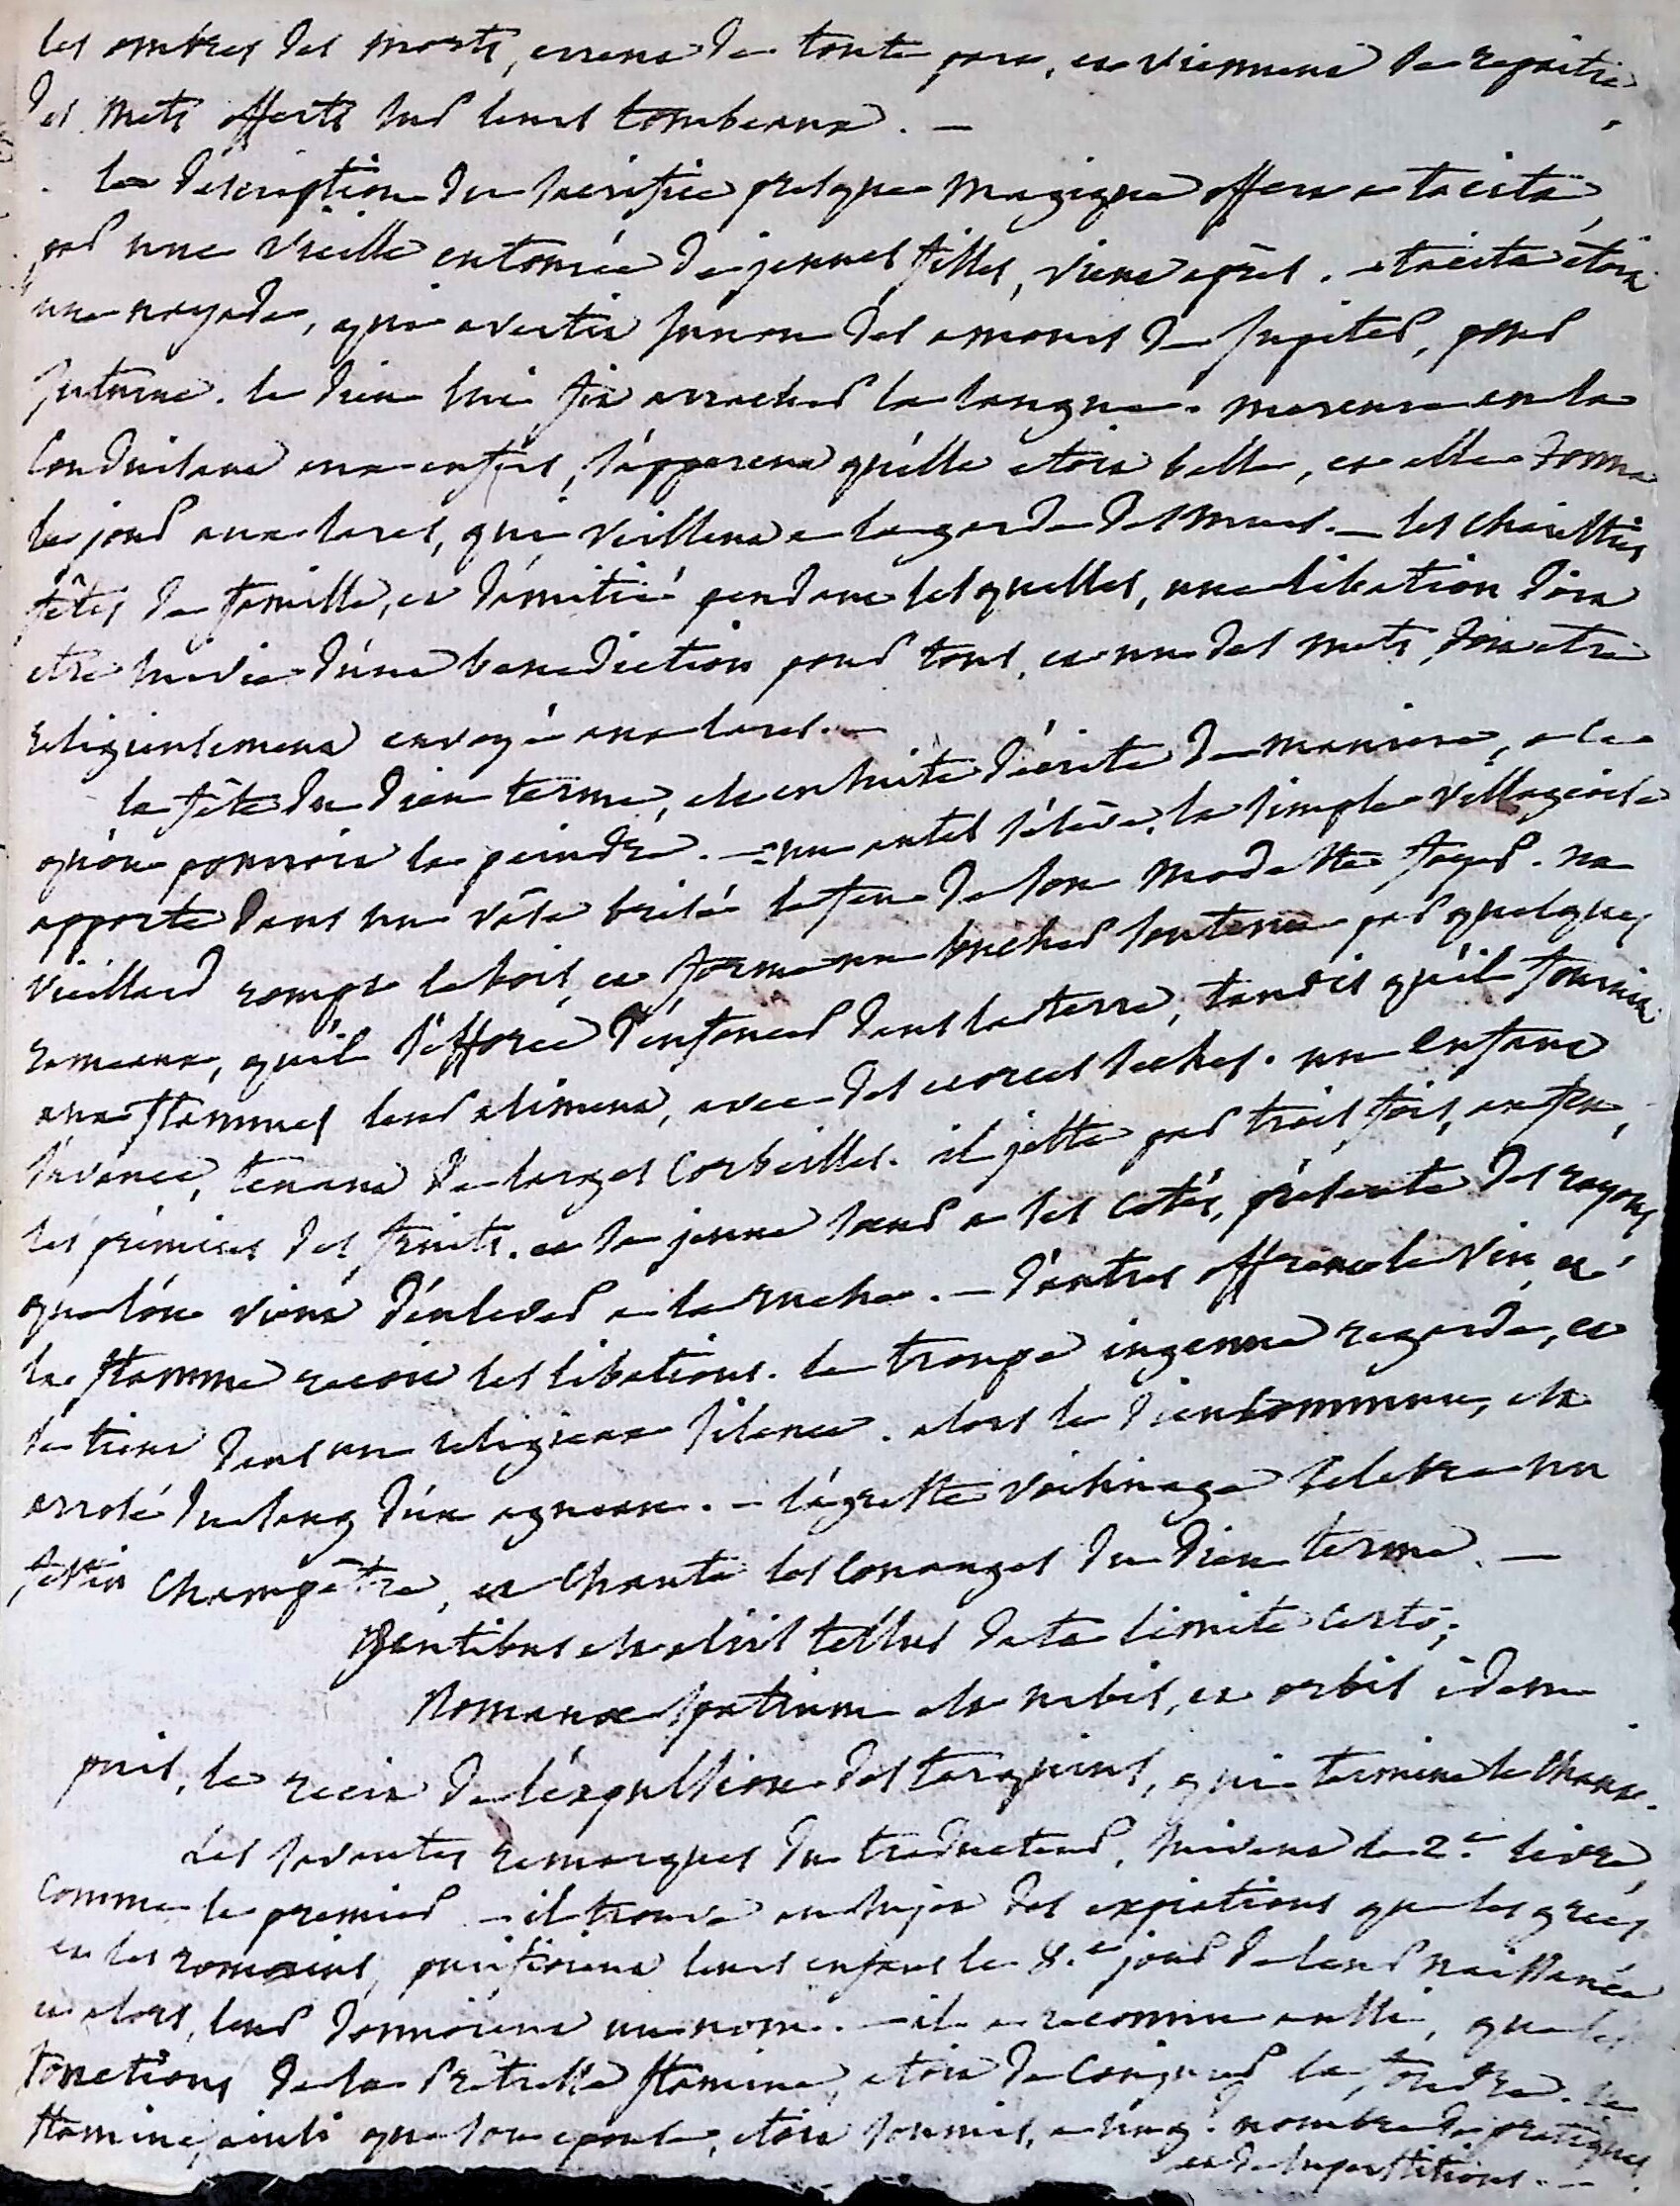 les ombres des morts, errent de toute part, et viennent se repaitre
des mets offerts sur leurs tombeaux. —
la description du sacrifice presque magique offert a tacita,
par une vieille entourée de jeunes filles, vient après. — tacita étoit
une nayade, qui avertit junon des amours de jupiter, pour
juturne. le dieu lui fit arracher la langue. mercure en la
conduisant aux enfers, s'apperçut qu'elle etoit belle, et elle donna
le jour aux lares, qui veillent a la garde des murs. — les charisties
fêtes de famille, et d'amitié pendant lesquelles, une libation doit
etre suivie d'une benediction pour tous, et un des mets, doit etre
religieusement envoyé aux lares. —
la fête du dieu terme, est ensuite décrite de maniere, a ce
qu'on pourroit la peindre. — un autel s'élève. la simple villageoise
apporte dans un vâse brisé le feu de son modeste foyer. un
vieillard rompt le bois, et forme un bucher soutenu par quelques
rameaux, qu'il s'efforce d'enfoncer dans la terre, tandis qu'il fournit
aux flammes leur aliment, avec des ecorces seches. un enfant
s'avance, tenant de larges corbeilles. il jette par trois fois, au feu,
les prémices des fruits. et sa jeune sœur a ses cotés, présente des rayons
que l'on vient d'enlever a la ruche. — d'autres offrent le vin, et
la flamme reçoit les libations. la troupe ingenue regarde, et
se tient dans un religieux silence. alors le dieu commun, est
arrosé du sang d'un agneau. — l'agreste voisinage celebre un
festin champêtre, et chante les louanges du dieu terme. —
gentibus est aliis tellus data limite certo;
Romanæ spatium est urbis, et orbis idem
puis, le recit de l'expulsion des tarquins, qui termine le chant.
Les savantes remarques du traducteur, suivent le 2.e livre,
comme le premier — il trouve au sujet des expiations que les grecs
et les romains, purifioient leurs enfans le 8.e jour de leur naissance
et alors, leur donnoient un nom. — il a reconnu aussi, que les
fonctions de la prêtresse flamine, etoit de conjurer la foudre. la
flamine, ainsi que son epoux, etoit soumis, a nombre de pratiques
et de superstitions. —